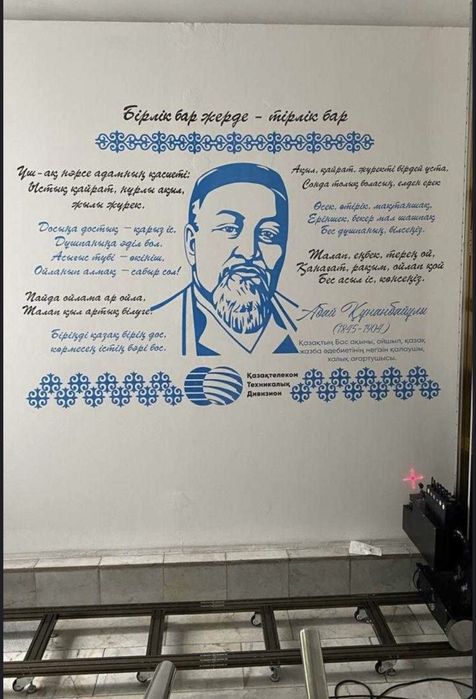 Бірлік бар жерде - тірлік бар
Үш-ақ нәрсе адамның қасиеті:
Ыстық қайрат, нұрлы ақыл,
жылы жүрек.
Досыңа достық — қарыз іс,
Дұшпаныңа әділ бол.
Асығыс түбі - өкініш,
Ойланып алмақ - сабыр сол!
Пайда ойлама ар ойла,
Талап қыл артық білуге.
Біріңді қазақ бірің дос,
көрмесең істің бәрі бос.
Ақыл, қайрат, жүректі бірдей ұста,
Сонда толық боласың, елден ерек
Өсек, өтірік, мақтаншақ,
Еріншек, бекер мал шашпақ
Бес дұшпаның, білсеңіз.
Талап, еңбек, терең ой,
Қанағат, рақым, ойлап қой
Бес асыл іс, көнсеңіз.
Абай Құнанбайұлы
(1845-1904)
Қазақтың бас ақыны, ойшыл, қазақ
жазба әдебиетінің негізін қалаушы,
халық ағартушысы.
Қазақтелеком
Техникалық
Дивизион